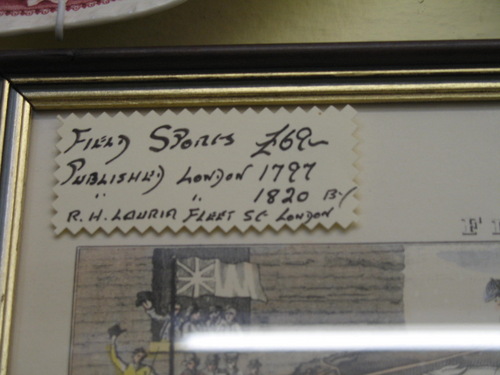 FIELD SPORTS £69~
PUBLISHED LONDON 1797
" " 1820 BY
R.H. LAURIA FLEET ST. LONDON